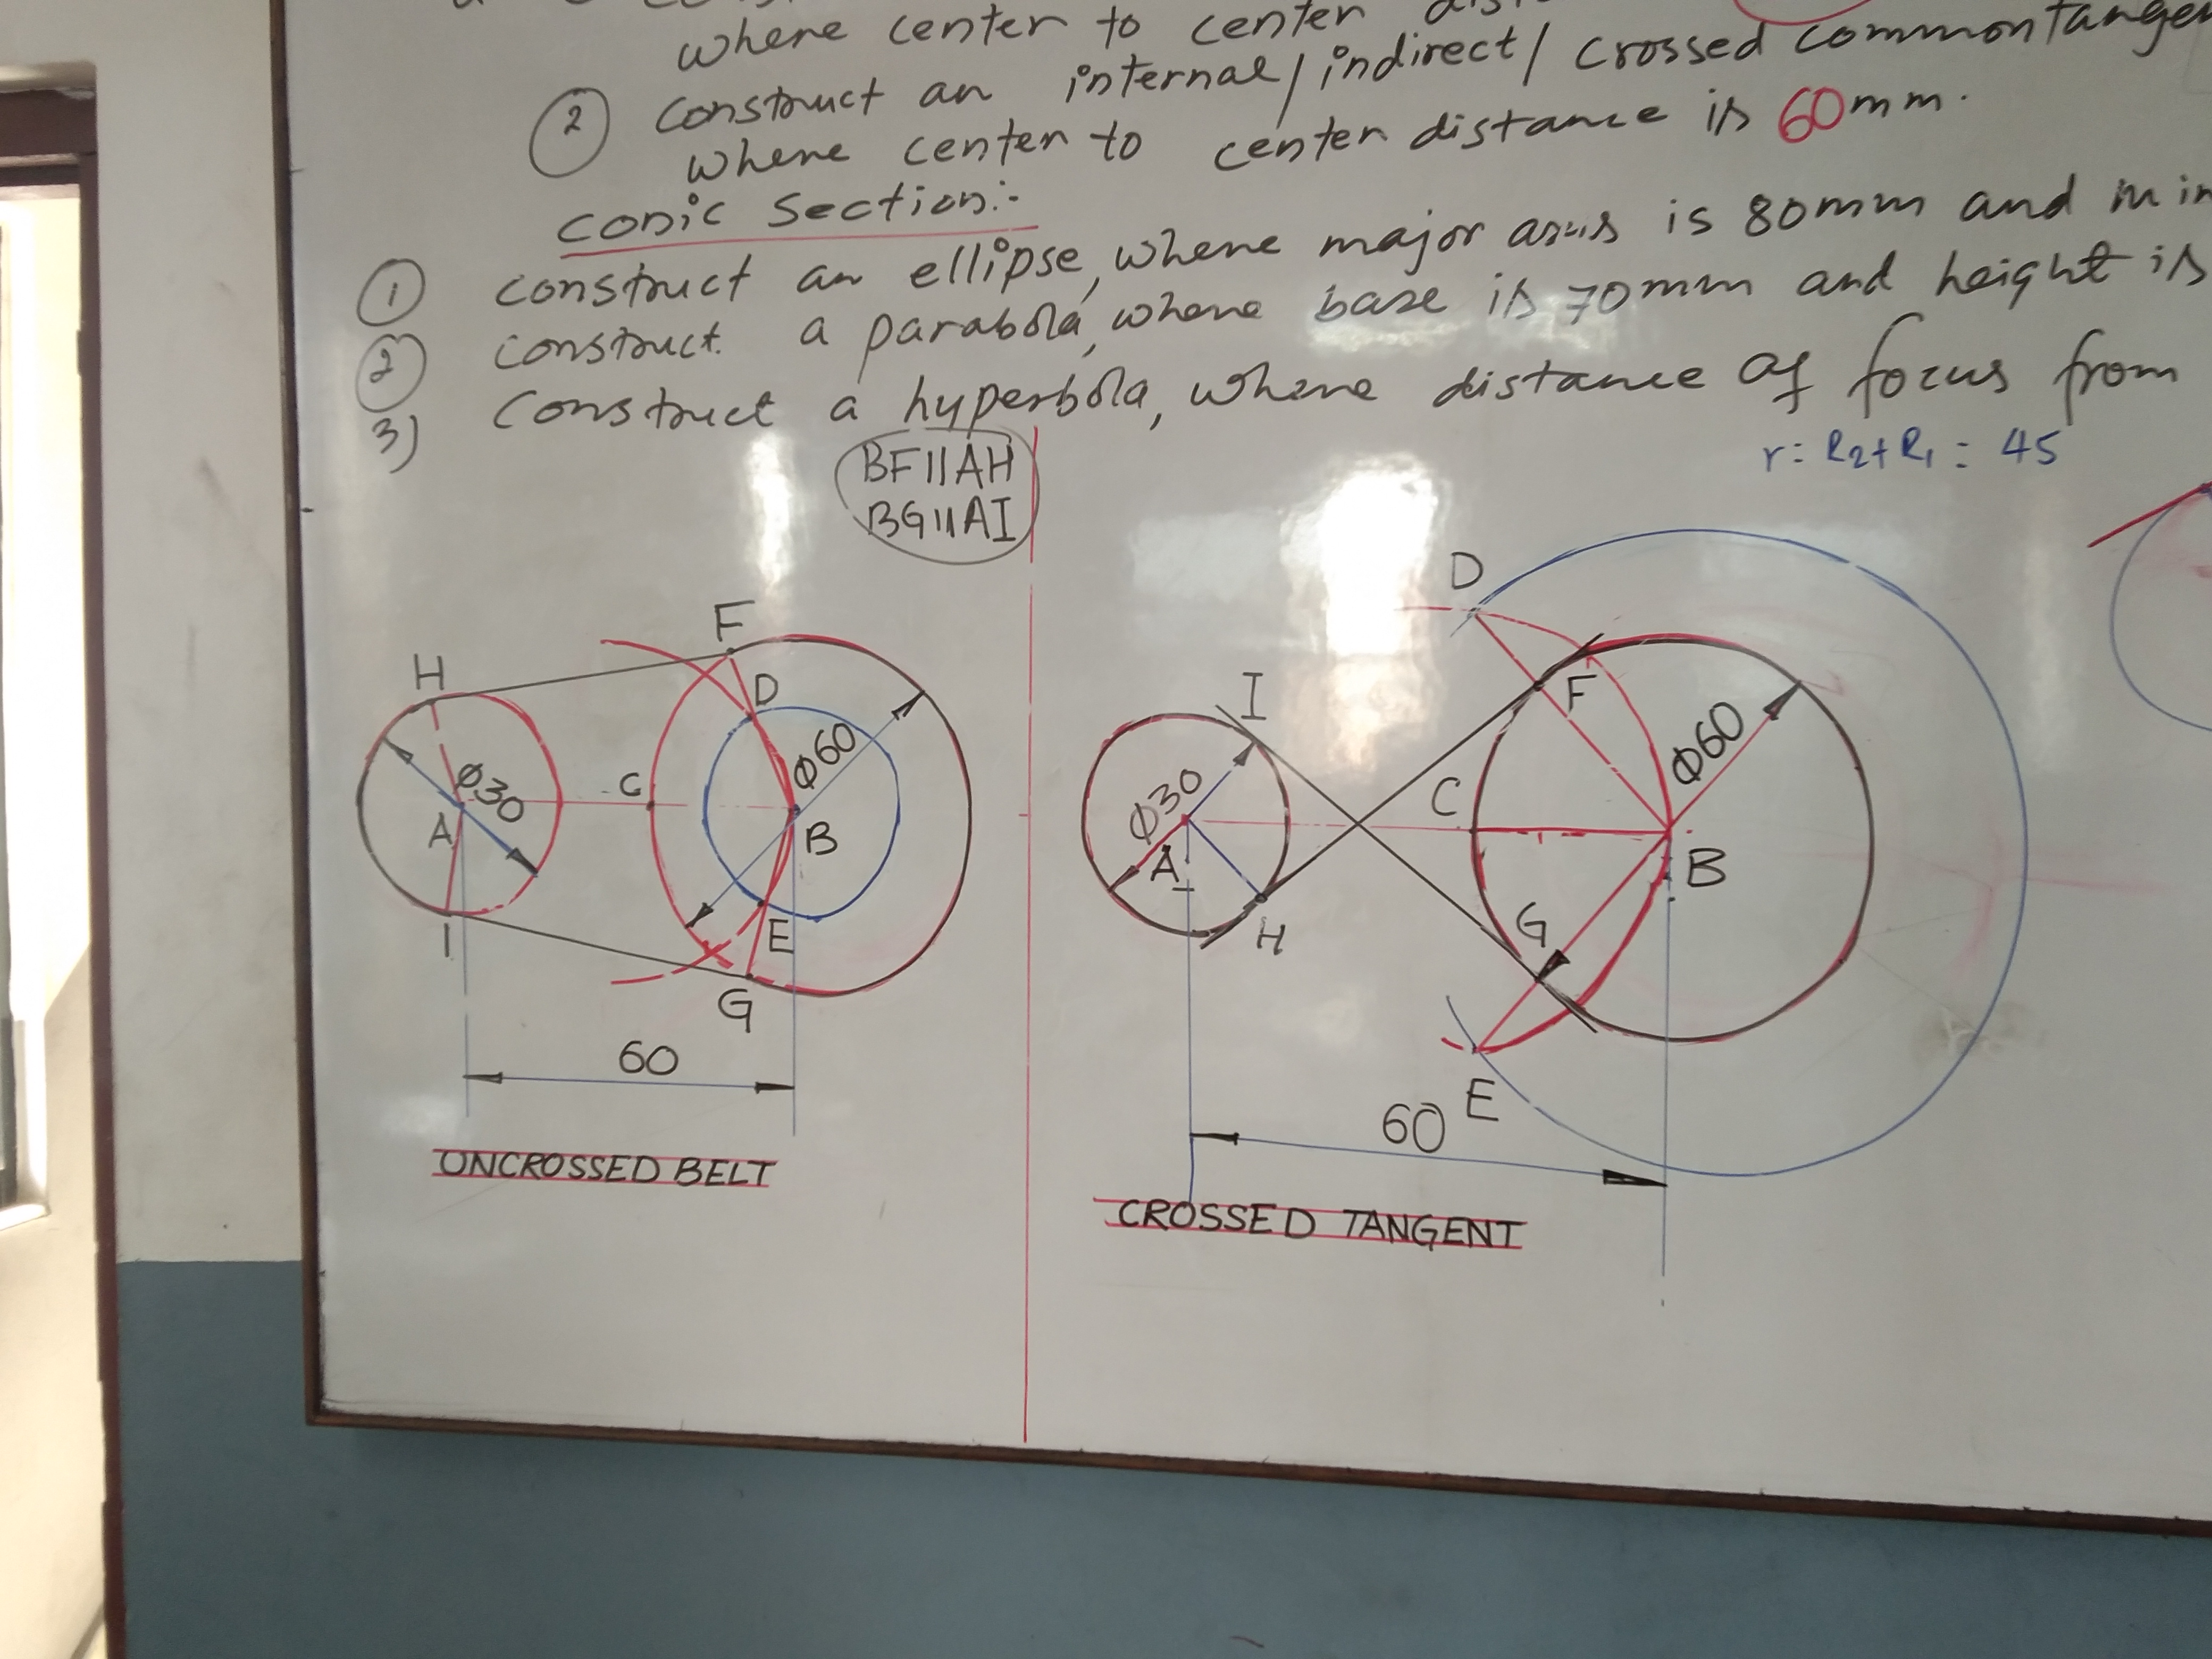 where center to center
② construct an internal/indirect/crossed common tangen
where center to center distance is 60mm.
conic section:-
① construct an ellipse, where major axis is 80mm and min
② construct. a parabola, where base is 70mm and height is
3) Construct a hyperbola, where distance of focus from
BF||AH
BG||AI
r= R2+R1= 45
H
F
D
Φ30
Φ60
A
C
B
E
I
G
60
UNCROSSED BELT
D
I
F
Φ60
C
Φ30
A
B
G
H
E
60
CROSSED TANGENT